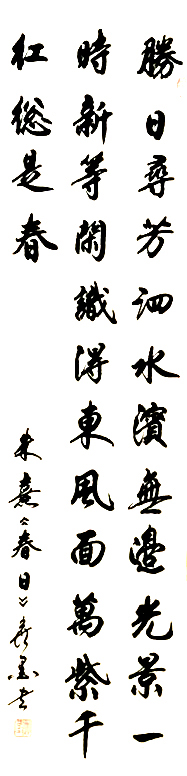 勝日尋芳泗水濱無邊光景一
時新等閑識得東風面萬紫千
紅總是春
朱熹《春日》